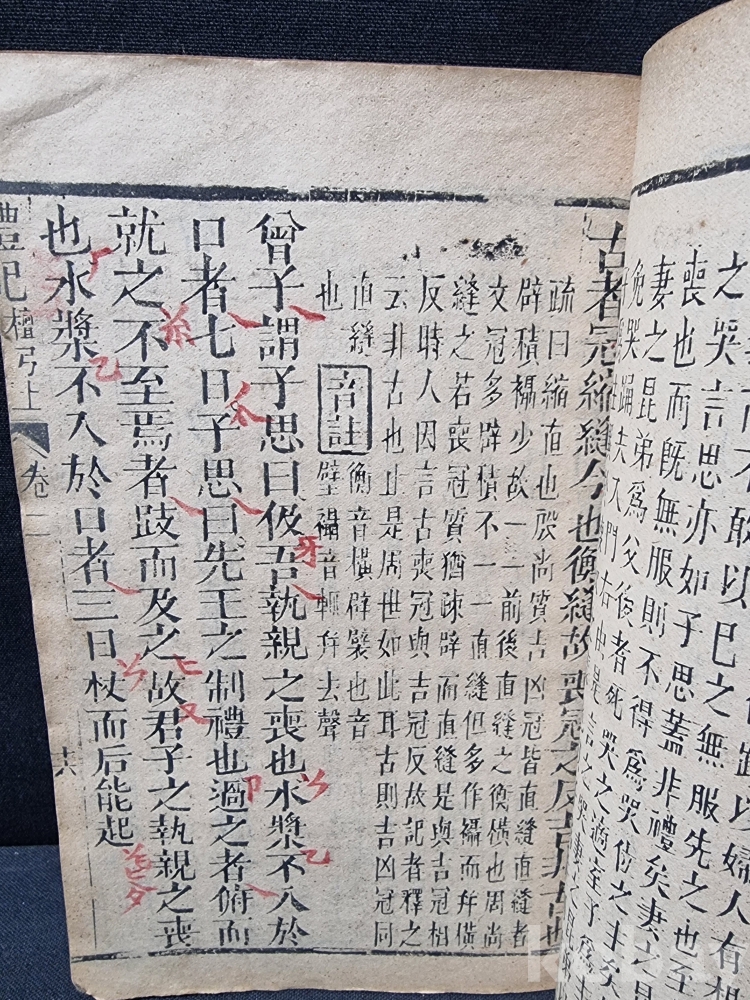 而不敢以已之無服先之也至
之哭言思亦如子思蓋非禮矣妻之
喪也而既無服則不得爲哭位之非矣
妻之昆弟爲父後者死哭之適室子爲主
哭踊夫入門右由是言之哭妻之昆
古者冠縮縫今也衡縫故喪冠之反吉非古也
疏曰縮直也殷尚質吉凶冠皆直縫直縫者
辟積襵少故一一前後直縫之衡橫也周尚
文冠多辟積不一一直縫但多作襵而幷橫
縫之若喪冠質猶疎辟而直縫是與吉冠相
反時人因言古喪冠與吉冠反故記者釋之
云非古也止是周世如此耳古則吉凶冠同
直縫
也
音註
衡音橫辟襞也音
壁襵音輒幷去聲
曾子謂子思曰伋吾執親之喪也水漿不入於
口者七日子思曰先王之制禮也過之者俯而
就之不至焉者跂而及之故君子之執親之喪
也水漿不入於口者三日杖而后能起
禮記
檀弓上
卷二
十六